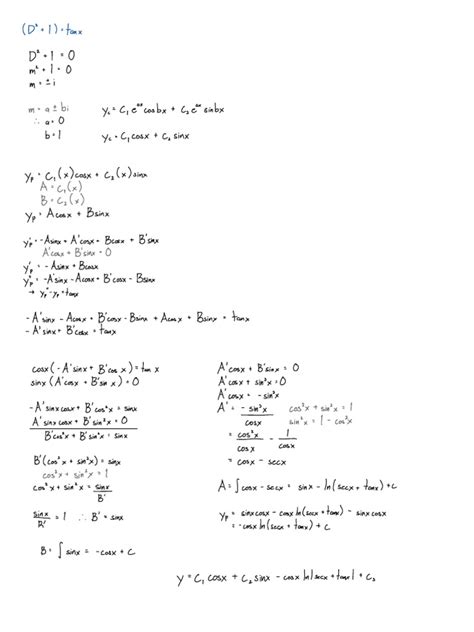 (D² + 1) = tanx
D² + 1 = 0
m² + 1 = 0
m = ± i
m = a ± bi
∴ a = 0
b = 1
y꜀ = C₁ eᵃˣ cosbx + C₂ eᵃˣ sinbx
y꜀ = C₁ cosx + C₂ sinx
yₚ = C₁(x)cosx + C₂(x)sinx
A = C₁(x)
B = C₂(x)
yₚ = Acosx + Bsinx
yₚ' = -Asinx + A'cosx + Bcosx + B'sinx
A'cosx + B'sinx = 0
yₚ' = -Asinx + Bcosx
yₚ'' = -A'sinx - Acosx + B'cosx - Bsinx
→ yₚ'' - yₚ = tanx
-A'sinx - Acosx + B'cosx - Bsinx + Acosx + Bsinx = tanx
-A'sinx + B'cosx = tanx
cosx(-A'sinx + B'cosx) = tanx
sinx(A'cosx + B'sinx) = 0
-A'sinxcosx + B'cos²x = sinx
A'sinxcosx + B'sin²x = 0
B'cos²x + B'sin²x = sinx
B'(cos²x + sin²x) = sinx
cos²x + sin²x = 1
cos²x + sin²x = sinx/B'
sinx/B' = 1 ∴ B' = sinx
B = ∫ sinx = -cosx + C
A'cosx + B'sinx = 0
A'cosx + sin²x = 0
A'cosx = -sin²x
A' = - sin²x/cosx
cos²x + sin²x = 1
sin²x = 1 - cos²x
= cos²x/cosx - 1/cosx
= cosx - secx
A = ∫ cosx - secx = sinx - ln(secx + tanx) + C
yₚ = sinxcosx - cosxln(secx + tanx) - sinxcosx
= -cosxln(secx + tanx) + C
y = C₁ cosx + C₂ sinx - cosx ln|secx + tanx| + C₃